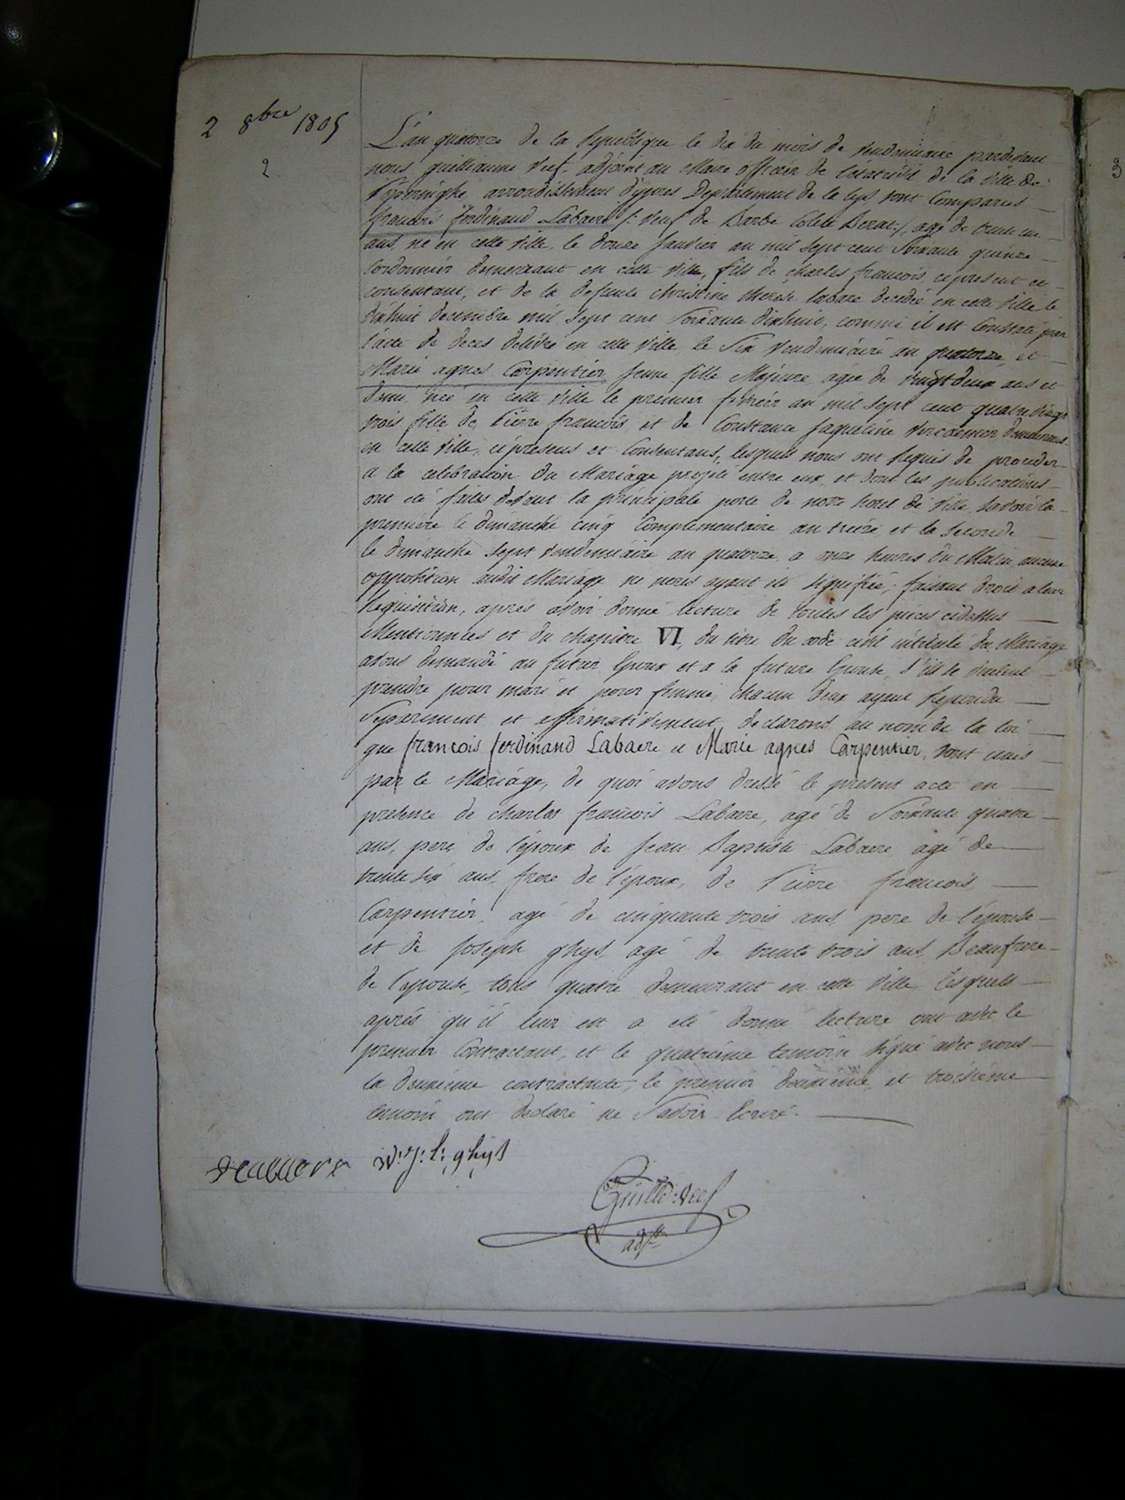 2 8bre 1805
2
L'an quatorze de la Republique le dix du mois de vendemiaire pardevant
nous guilliaume Verf adjoint au Maire officier de l'etat civil de la ville de
arrondissement d'ypres Departement de la Lys sont comparus
francois ferdinand Labaere /: veuf de Barbe :/ agé de trente un
ans né en cette ville le douze Janvier an mil sept cent soixante quinze
Cordonnier demeurant en cette ville, fils de charles francois cipresent et
consentant, et de la defunte christine therese decedée en cette ville le
dixhuit decembre mil sept cent soixante dixhuit, comme il est constaté par
l'acte de deces delivré en cette ville le six vendemiaire an quatorze, et
Marie agnes Carpentier Jeune fille Majeure agee de vingt deux ans et
demi née en cette ville le premier fevrier an mil sept cent quatre vingt
trois fille de Pierre francois et de Constance Jaqueline demeurans
en cette ville, cipresens et consentans, lesquels nous ont requis de proceder
a la celebration du Mariage projeté entre eux et dont les publications
ont été faites devant la principale porte de notre hotel de ville, savoir la
premiere le dimanche cinq complementaire an treize et la seconde
le dimanche sept vendemiaire an quatorze a onze heures du Matin, aucune
opposition audit Mariage ne nous ayant été signifiée, faisant droit a leur
requisition, après avoir donné lecture de toutes les pieces cidessus
Mentionnees et du chapitre VI, du titre du code civil intitulé du Mariage
avons demandé au futur Epoux et a la future Epouse, s'ils se veulent
prendre pour mari et pour femme, chacun d'eux ayant repondu
separement et affirmativement, declarons au nom de la loi
que francois ferdinand Labaere et Marie agnes Carpentier, sont unis
par le Mariage, de quoi avons dressé le present acte en
presence de charles francois Labaere, agé de soixante quatre
ans, pere de l'époux de Jean Baptiste Labaere agé de
trente six ans, frere de l'époux, de Pierre francois
Carpentier, agé de cinquante trois ans, pere de l'épouse
et de Joseph ghys agé de trente trois ans, Beaufrere
de l'épouse, tous quatre demeurant en cette ville, lesquels
après qu'il leur en a été donné lecture ont avec le
premier Contractant, et le quatrieme temoin signé avec nous
la deuxieme contractante, le premier deuxieme et troisieme
temoin ont declaré ne savoir ecrire.
ghys
adjt
3